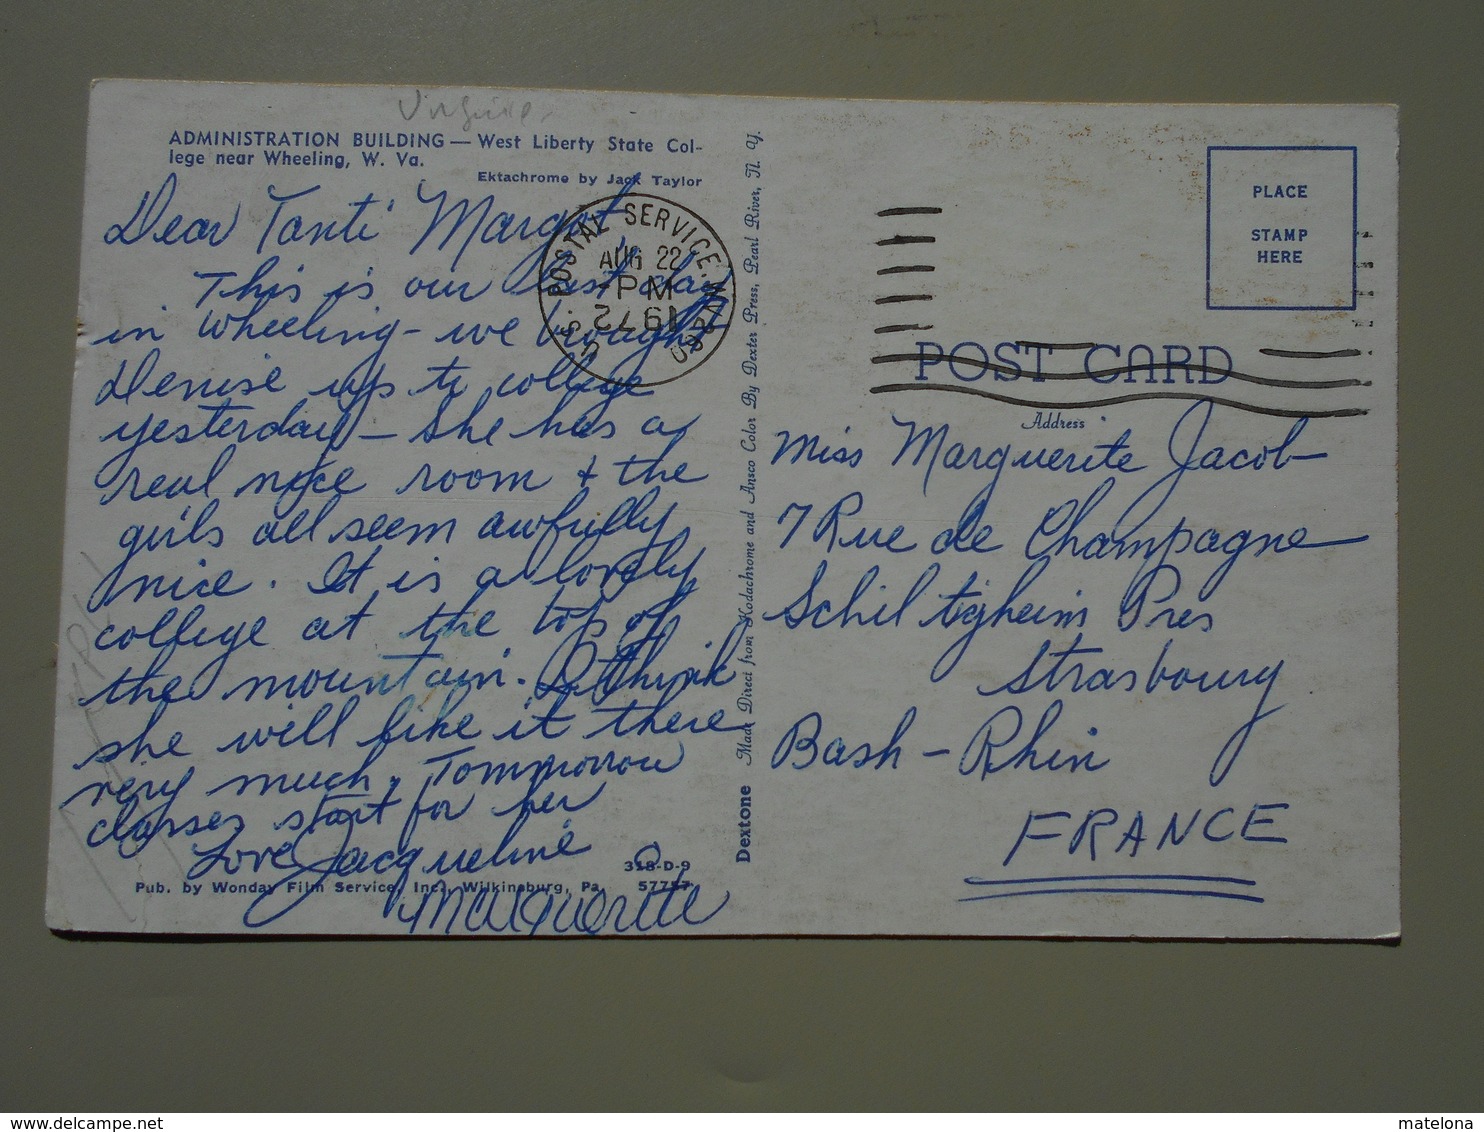 ADMINISTRATION BUILDING — West Liberty State Col-
lege near Wheeling, W. Va.
Ektachrome by Jack Taylor
Dear Tanti Margot
This is our last day
in Wheeling - we brought
Denise up to college
yesterday - she has a
real nice room + the
girls all seem awfully
nice. It is a lovely
college at the top of
the mountain. I think
she will like it there
very much. Tommorrow
classes start for her
Love Jacqueline
Marguerite
318-D-9
Pub. by Wonday Film Service, Inc., Wilkinsburg, Pa. 57757
U.S. POSTAL SERVICE.
AUG 22
PM
Dextone Made Direct from Kodachrome and Ansco Color By Dexter Press, Pearl River, N. Y.
PLACE
STAMP
HERE
POST CARD
Address
Miss Marguerite Jacob
7 Rue de Champagne
Schiltigheim Pres
Strasbourg
Bash - Rhin
FRANCE
matelona